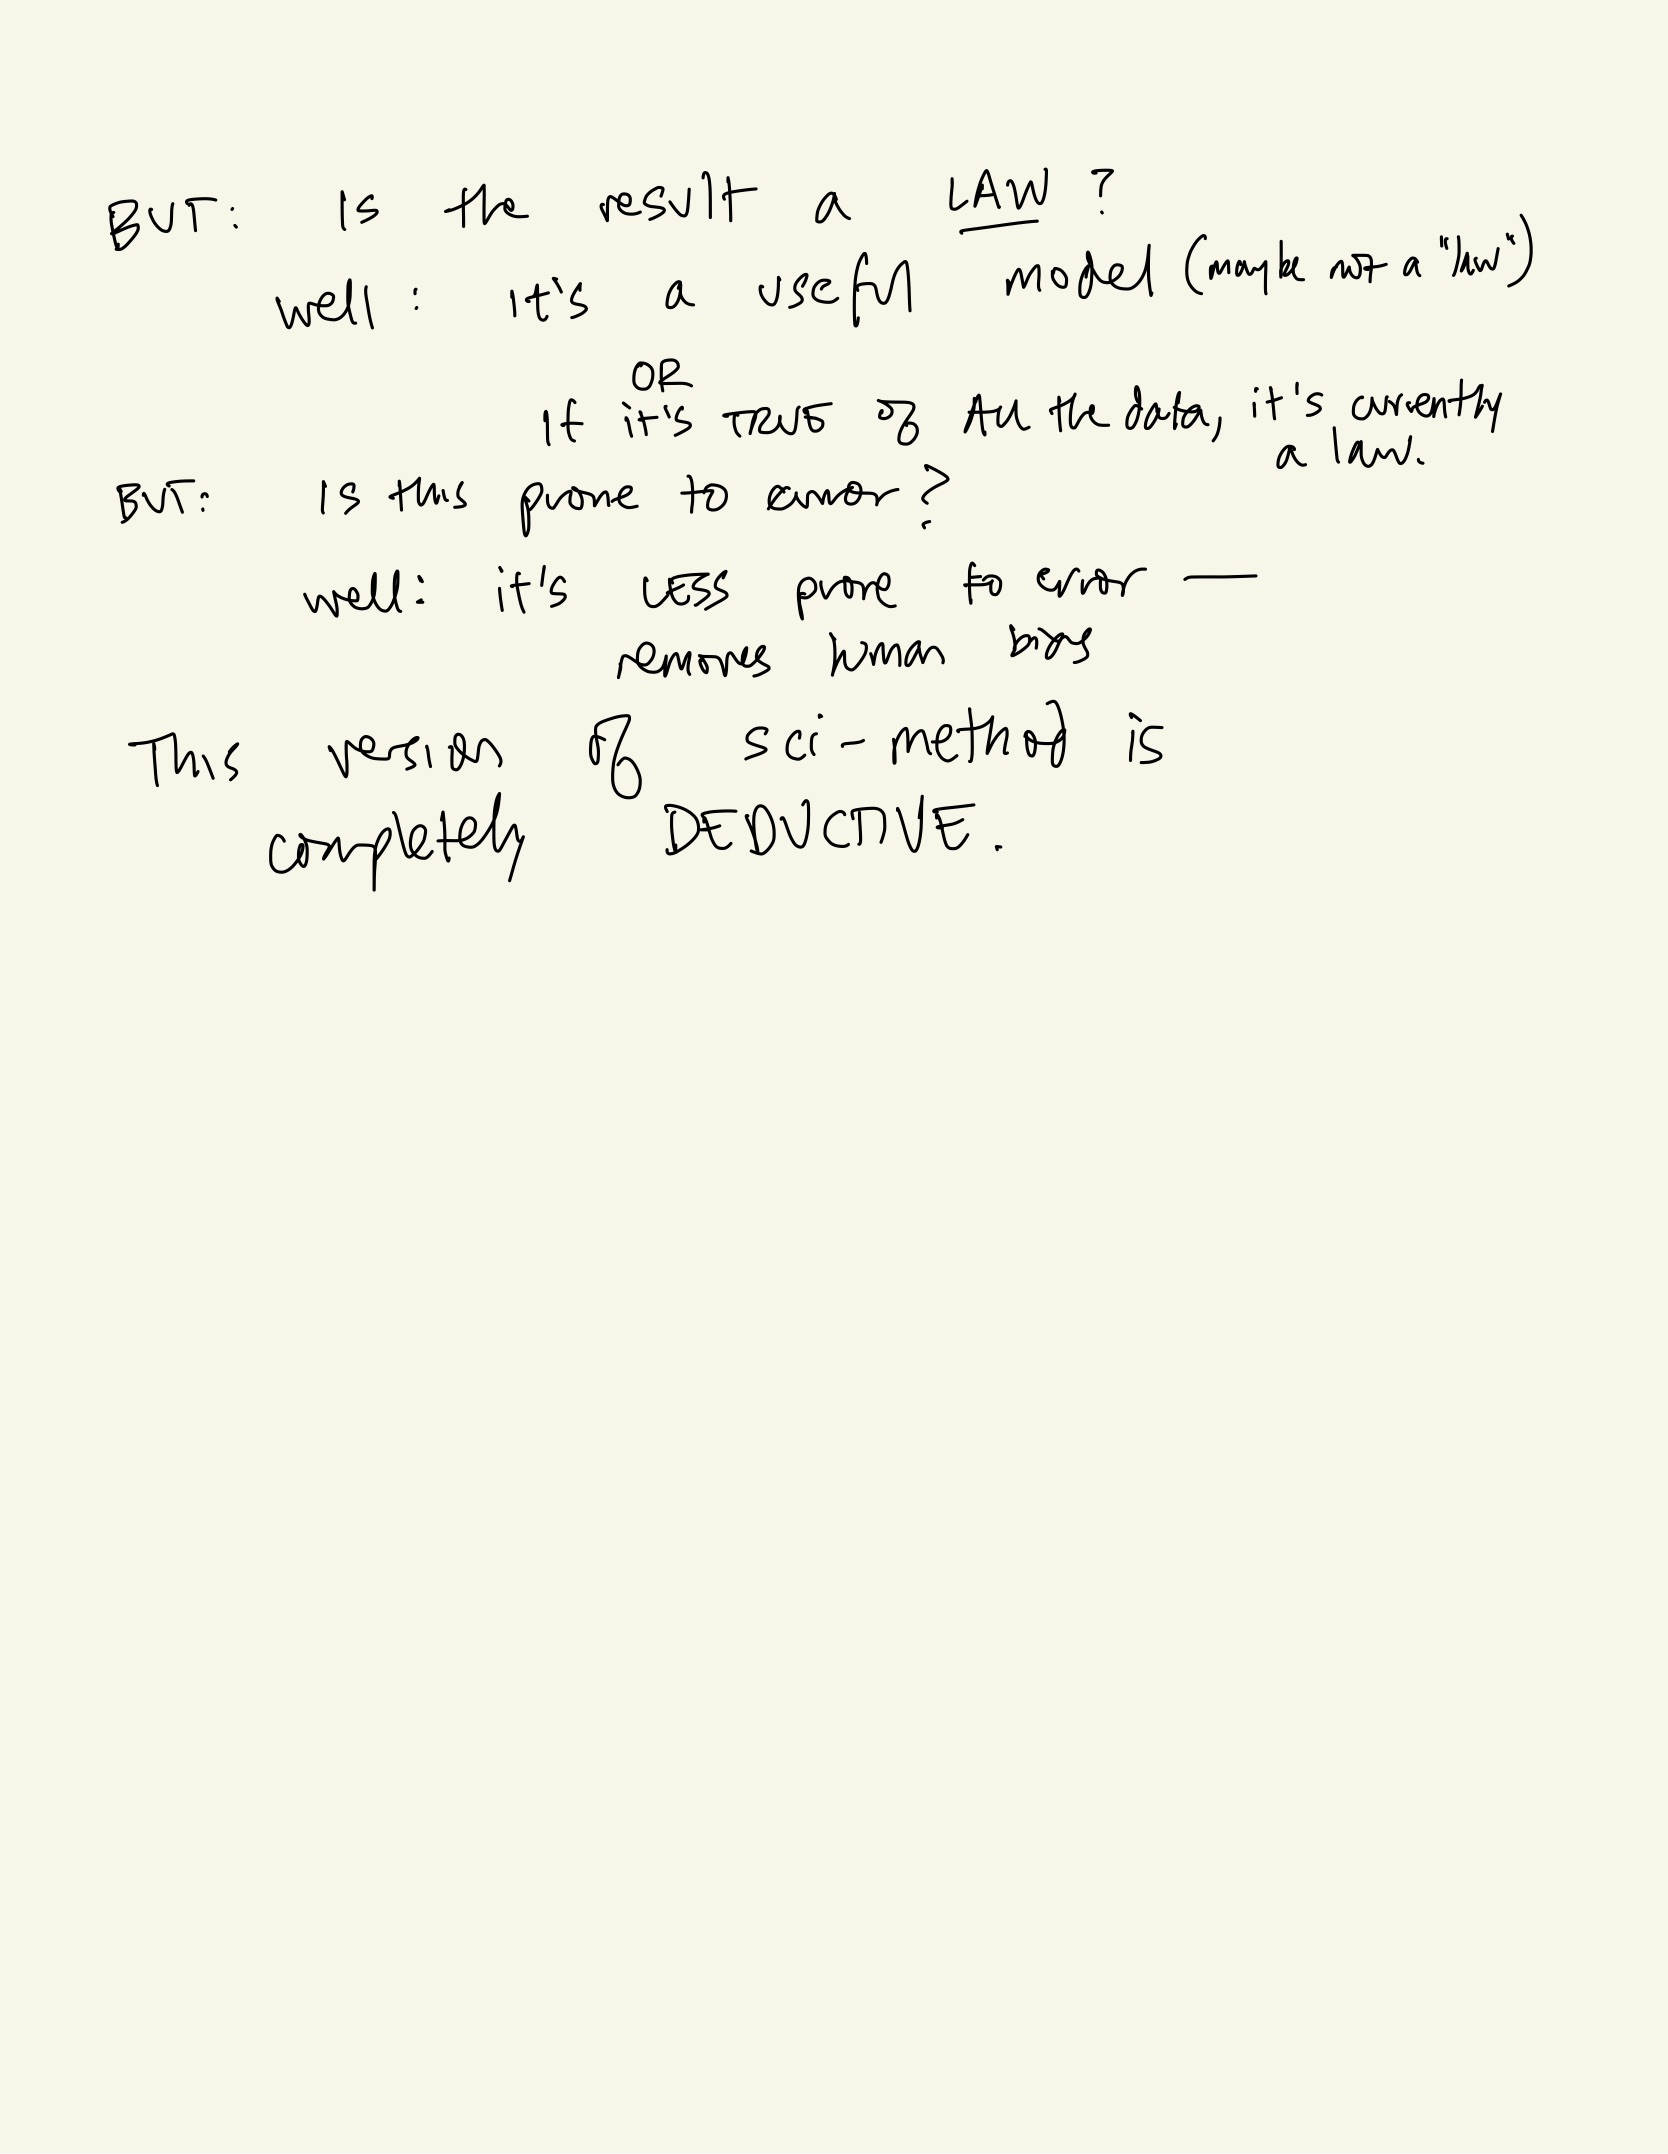 BUT: Is the result a LAW?
well: it's a useful model (maybe not a "law")
OR
If it's TRUE of All the data, it's currently
a law.
BUT: Is this prone to error?
well: it's LESS prone to error —
removes human bias
This version of sci-method is
completely DEDUCTIVE.